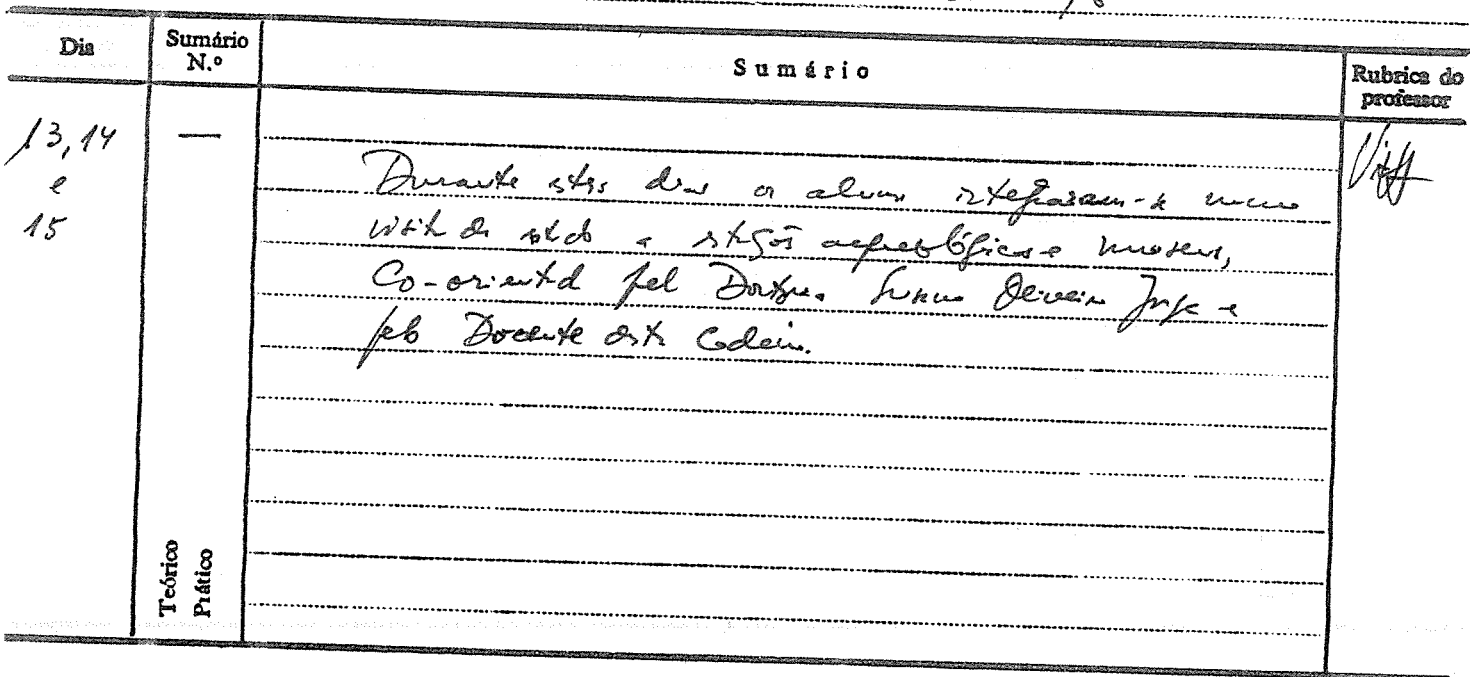 Dia
Sumário N.º
Sumário
Rubrica do professor
13, 14
e
15
—
Durante estes dias os alunos integraram-se numa
visita de estudo a estações arqueológicas e museus,
Co-orientada pela Doutora Susana Oliveira Jorge e
pelo Docente desta Cadeira.
Teórico
Prático